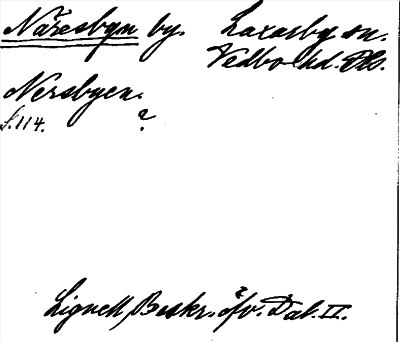 Näresbyn by. Laxarby sn.
Vedbo hd. Dls.
Nersbyen.
s. 114. ?
Lignell, Beskr. öfv. Dal. II.